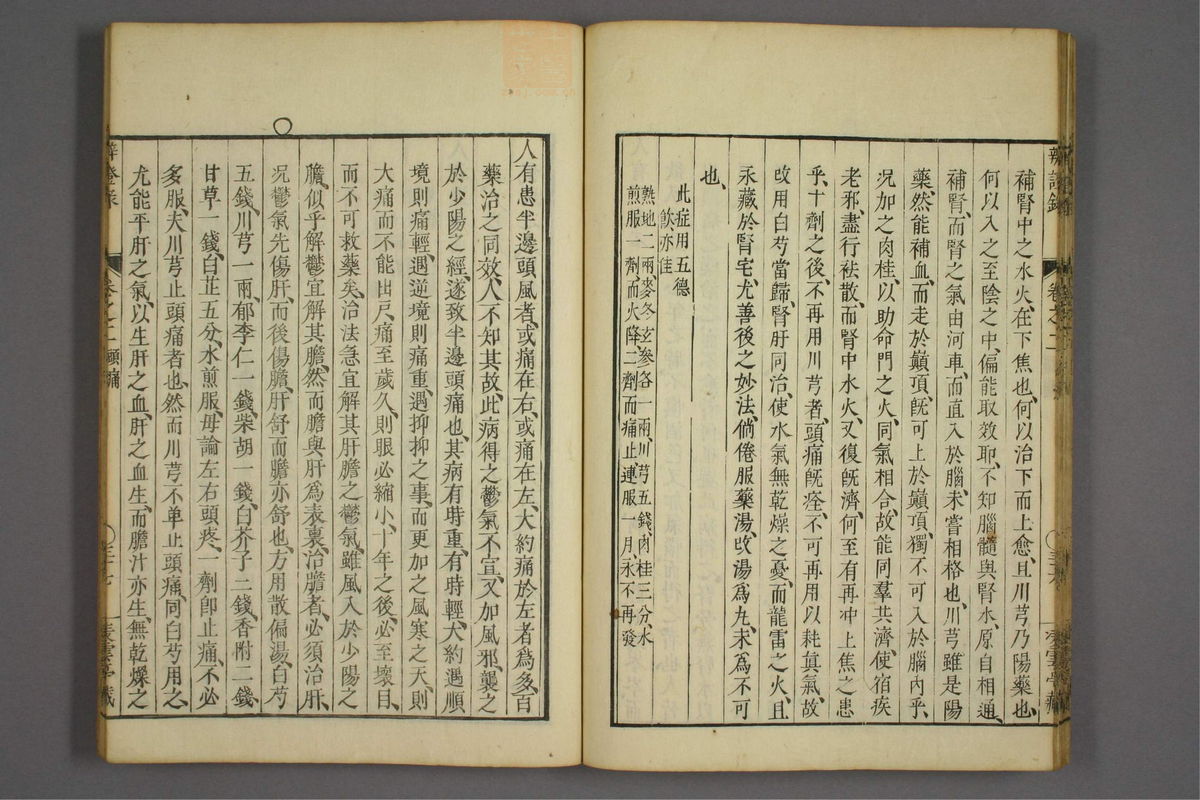 補腎中之水火、在下焦也、何以治下而上愈、且川芎乃陽藥也、
何以入之至陰之中、偏能取效耶、不知腦髓與腎水、原自相通、
補腎、而腎之氣、由河車、而直入於腦、未嘗相格也、川芎雖是陽
藥、然能補血、而走於巔頂、旣可上於巔頂、獨不可入於腦內乎、
况加之肉桂、以助命門之火、同氣相合、故能同羣共濟、使宿疾
老邪、盡行祛散、而腎中水火、又復旣濟、何至有再冲上焦之患
乎、十劑之後、不再用川芎者、頭痛旣痊、不可再用以耗眞氣、故
攺用白芍當歸、腎肝同治、使水氣無乾燥之憂、而龍雷之火、且
永藏於腎宅、尤善後之妙法、倘倦服藥湯、攺湯爲丸、未爲不可
也、
此症用五德
飲亦佳
熟地二兩、麥冬玄參各一兩、川芎五錢、肉桂三分、水
煎服一劑、而火降二劑而痛止連服一月永不再發
辨證錄
卷之二
人有患半邊頭風者、或痛在右、或痛在左、大約痛於左者爲多、百
藥治之罔效、人不知其故、此病得之鬱氣不宣、又加風邪、襲之
於少陽之經、遂致半邊頭痛也、其病有時重、有時輕、大約遇順
境則痛輕、遇逆境則痛重、遇抑抑之事、而更加之風寒之天、則
大痛而不能出戶、痛至歲久、則眼必縮小、十年之後、必至壞目、
而不可救藥矣、治法急宜解其肝膽之鬱氣、雖風入於少陽之
膽、似乎解鬱宜解其膽、然而膽與肝爲表裏、治膽者、必須治肝、
况鬱氣先傷肝、而後傷膽、肝舒而膽亦舒也、方用散偏湯、白芍
五錢、川芎一兩、郁李仁一錢、柴胡一錢、白芥子三錢、香附二錢、
甘草一錢、白芷五分、水煎服、毋論左右頭疼、一劑卽止痛、不必
多服、夫川芎止頭痛者也、然而川芎不單止頭痛、同白芍用之、
尤能平肝之氣、以生肝之血、肝之血生、而膽汁亦生、無乾燥之
卷之二 頭痛